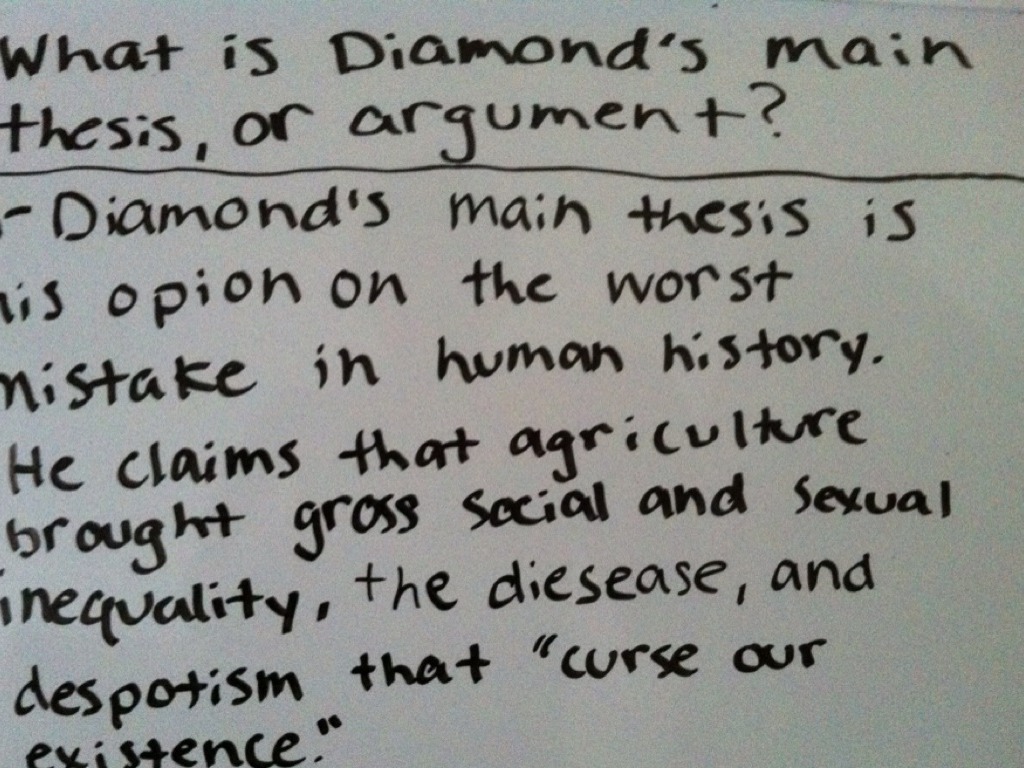 What is Diamond's main
thesis, or argument?
- Diamond's main thesis is
his opion on the worst
mistake in human history.
He claims that agriculture
brought gross social and sexual
inequality, the diesease, and
despotism that "curse our
existence."